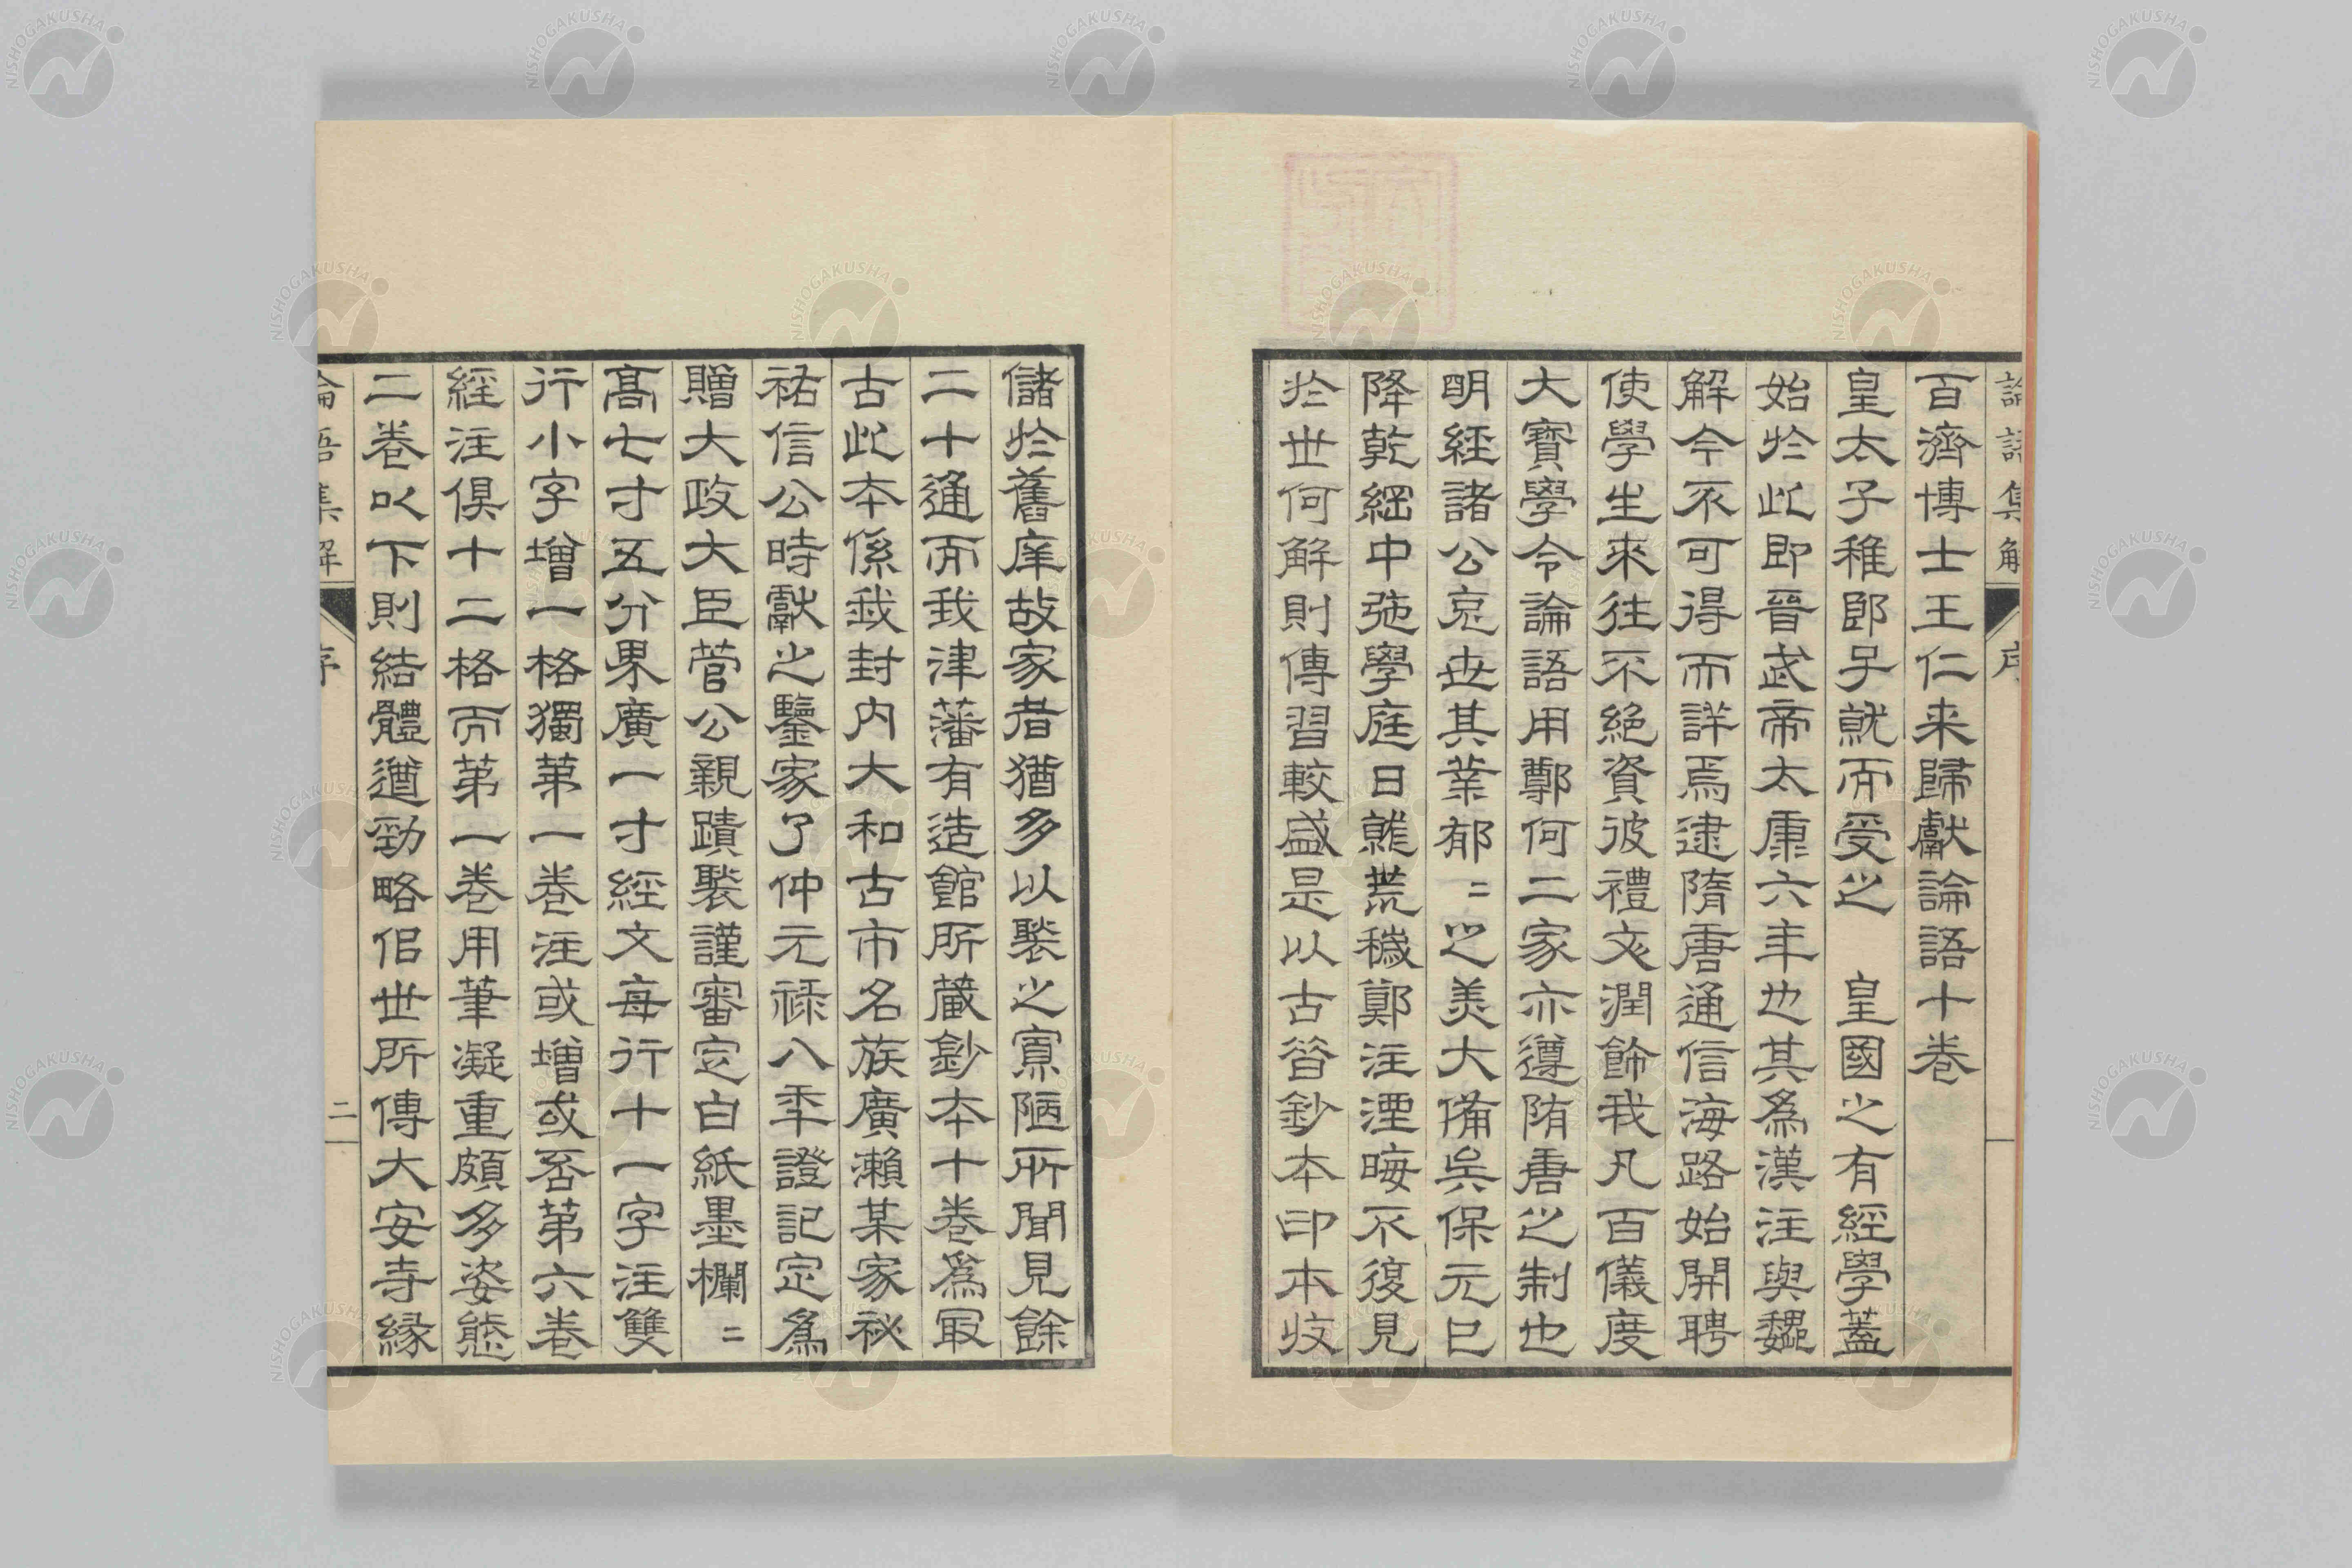 百濟博士王仁来歸獻論語十卷
皇太子稚郎子就而受之　皇國之有經學蓋
始於此即晉武帝太康六年也其為漢注與魏
解今不可得而詳焉逮隋唐通信海路始開聘
使學生來往不絕資彼禮文潤飾我凡百儀度
大寶學令論語用鄭何二家亦遵隋唐之制也
明經諸公克世其業郁〻之美大備矣保元已
降乾綱中弛學庭日就荒穢鄭注湮晦不復見
於世何解則傳習較盛是以古昔鈔本印本收
儲於舊庠故家者猶多以褧之寡陋所聞見餘
二十通而我津藩有造館所蔵鈔本十卷為冣
古此本係我封內大和古市名族廣瀨某家祕
祐信公時獻之鑒家了仲元祿八年證記定為
贈大政大臣菅公親蹟褧謹審定白紙墨欄〻
高七寸五分界廣一寸經文每行十一字注雙
行小字增一格獨第一卷注或增或否第六卷
經注俱十二格而第一卷用筆凝重頗多姿態
二卷以下則結體遒勁略佀世所傳大安寺縁
論語集解
序
二
NISHOGAKUSHA